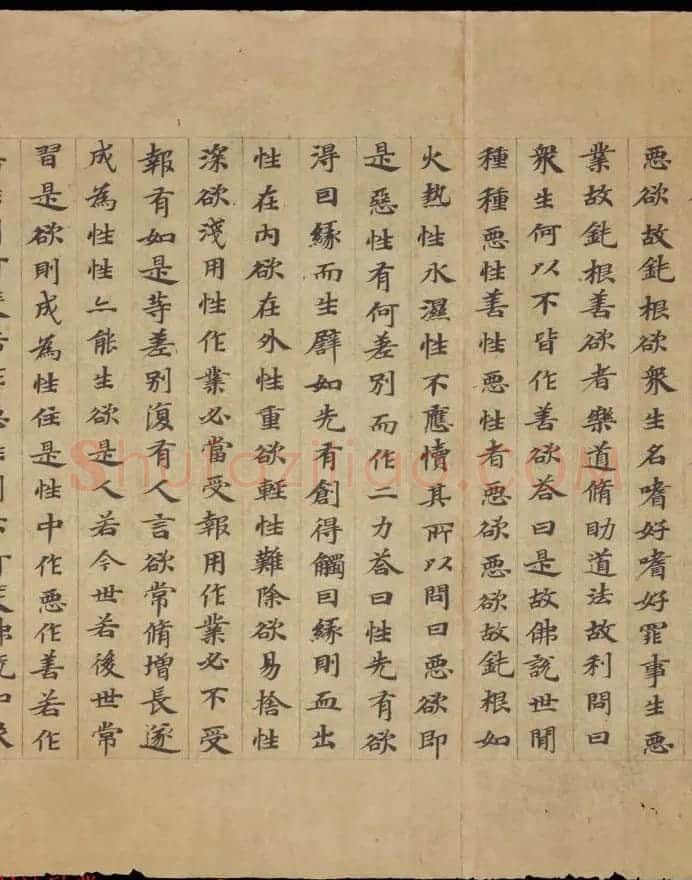 悪欲故鈍根欲衆生名嗜好嗜好罪事生悪
業故鈍根善欲者樂道脩助道法故利問曰
衆生何以不皆作善欲荅曰是故佛說世間
種種悪性善性悪性者悪欲悪欲故鈍根如
火熱性水濕性不應責其所以問曰悪欲即
是惡性有何差別而作二力荅曰性先有欲
得曰緣而生譬如先有創得觸曰緣則血出
性在內欲在外性重欲輕性難除欲易捨性
深欲淺用性作業必當受報用作業必不受
報有如是等差別復有人言欲常脩增長遂
成為性性亦能生欲是人若今世若後世常
習是欲則成為性住是性中作悪作善若作
Shufaziliao.com